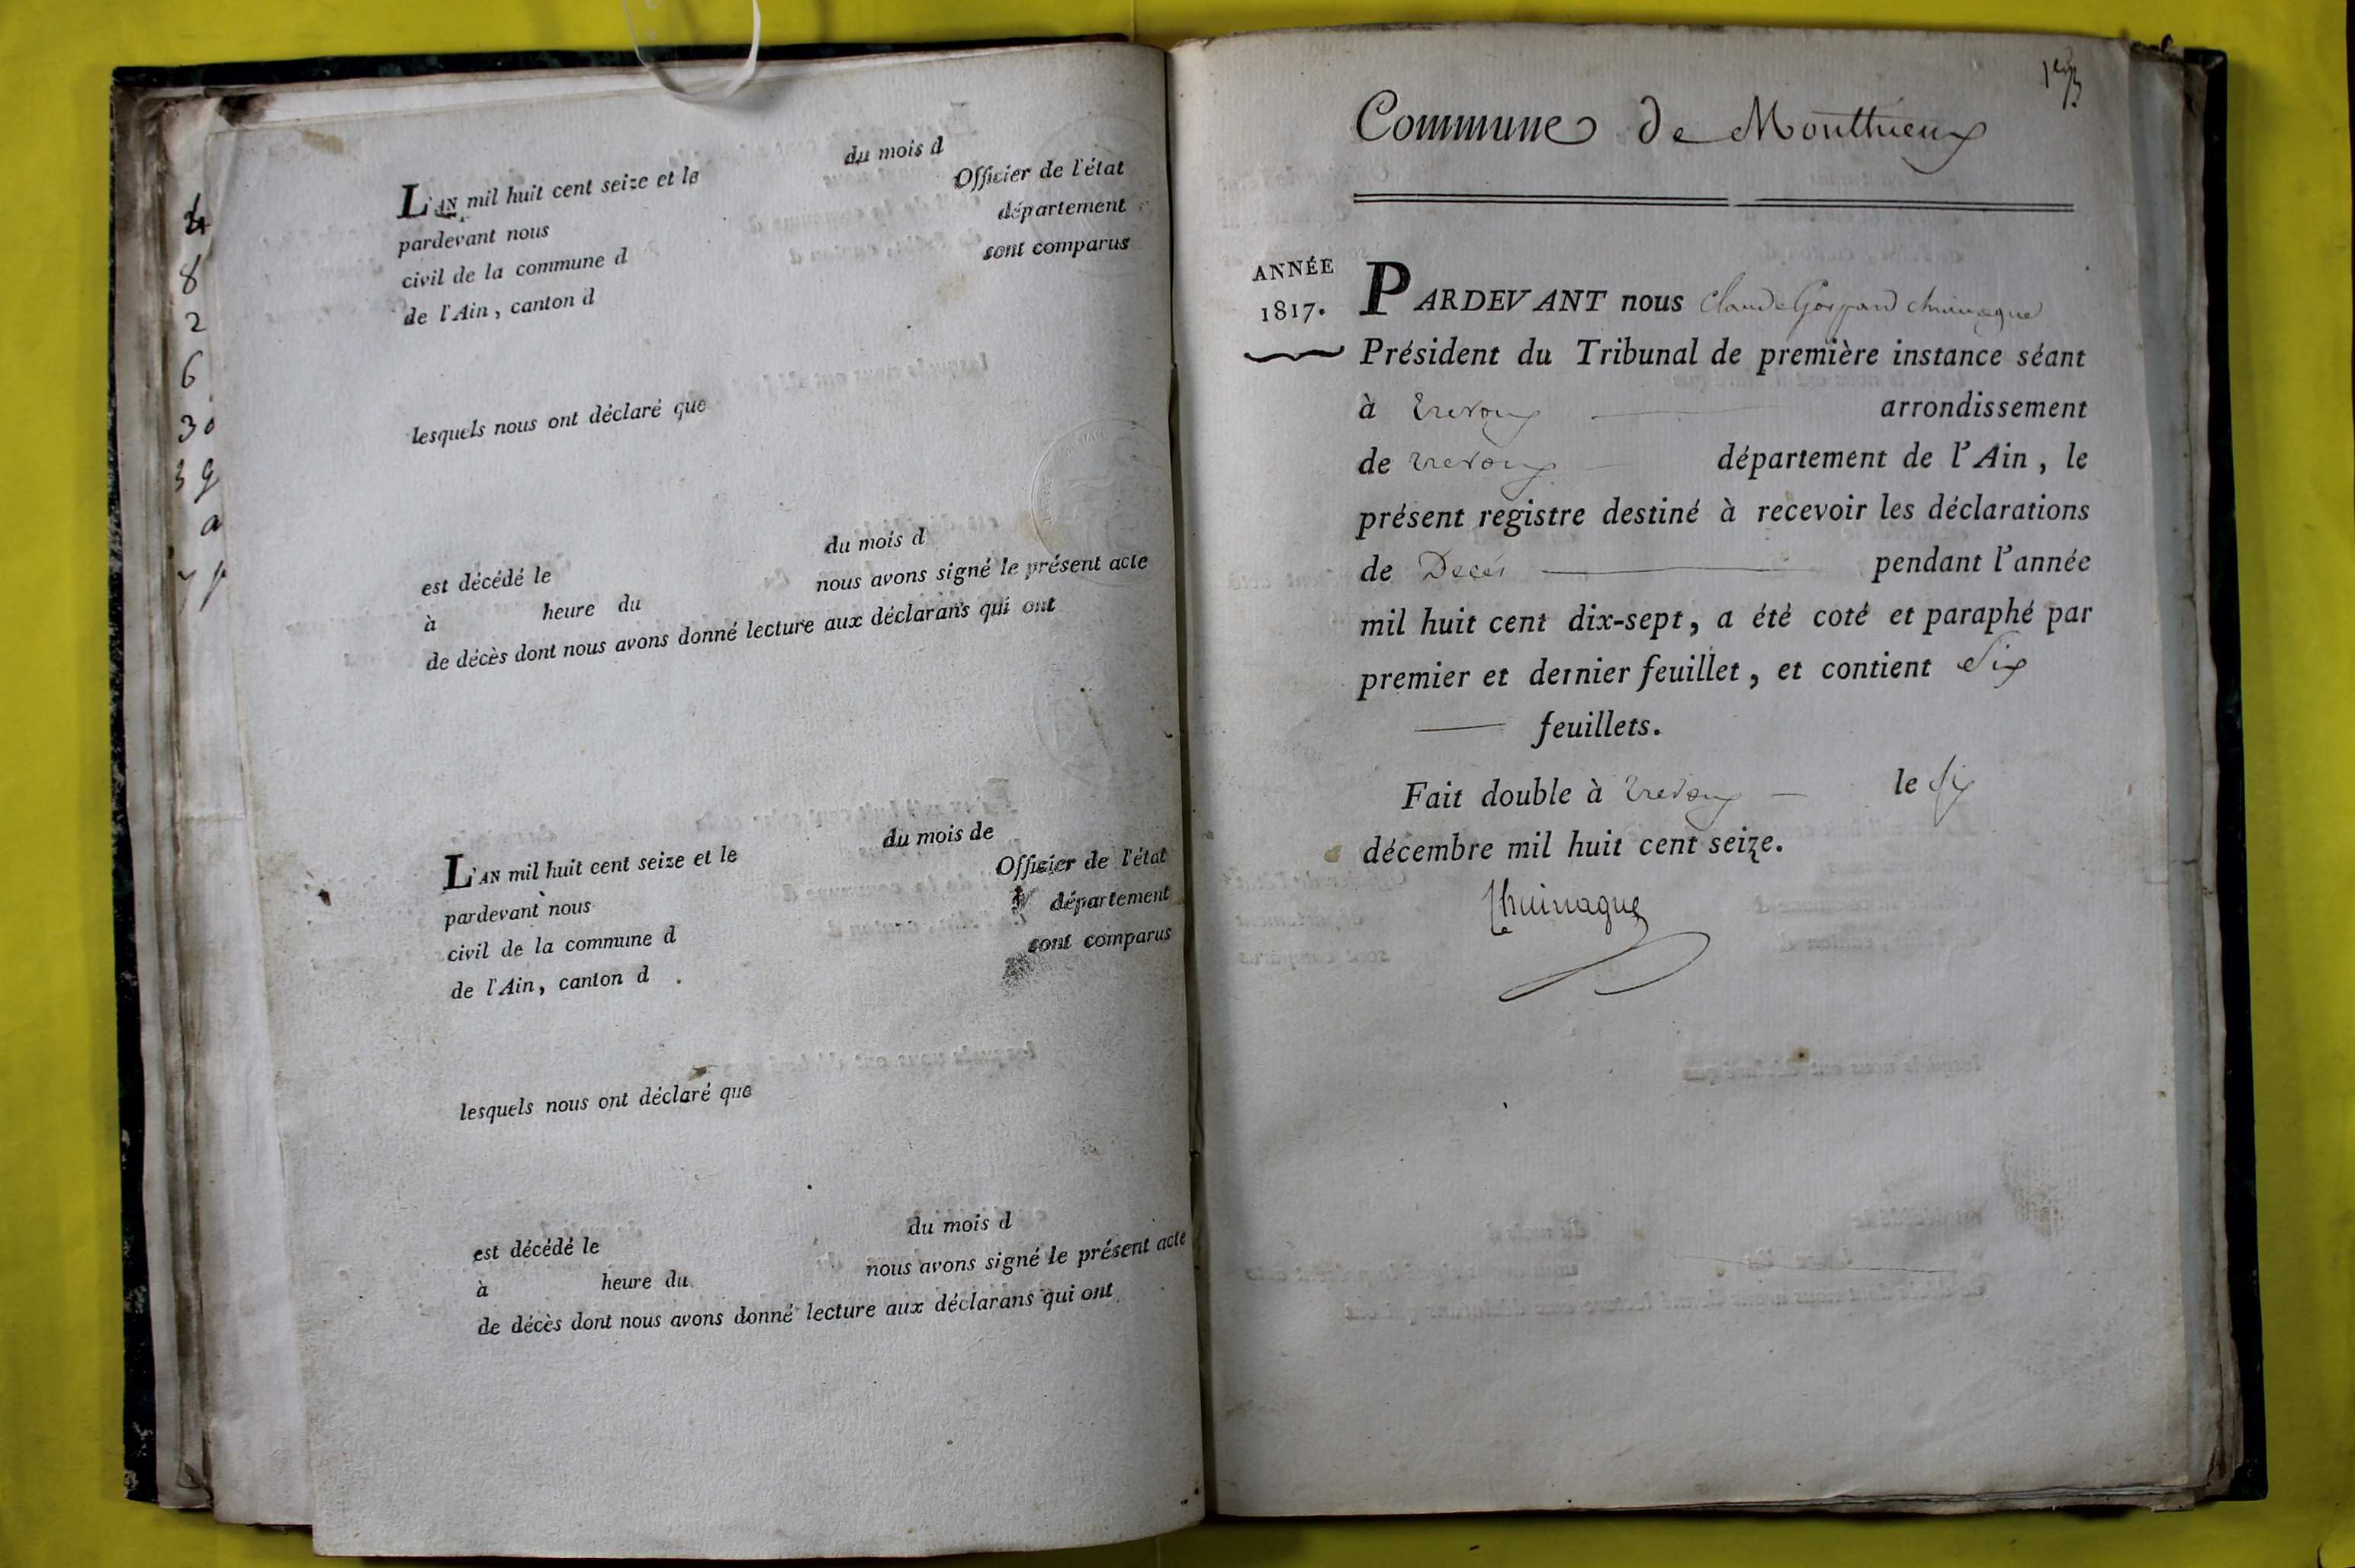 4
8
2
6
30
39
a
L'AN mil huit cent seize et le du mois d
pardevant nous Officier de l'état
civil de la commune d département
de l'Ain, canton d sont comparus
lesquels nous ont déclaré que
est décédé le du mois d
à heure du nous avons signé le présent acte
de décès dont nous avons donné lecture aux déclarans qui ont
L'AN mil huit cent seize et le du mois de
pardevant nous Officier de l'état
civil de la commune d département
de l'Ain, canton d sont comparus
lesquels nous ont déclaré que
est décédé le du mois d
à heure du nous avons signé le présent acte
de décès dont nous avons donné lecture aux déclarans qui ont
1er
Commune de Monthieux
ANNÉE
1817.
PARDEVANT nous Claude Gaspard
Président du Tribunal de première instance séant
à Trevoux arrondissement
de Trevoux département de l'Ain, le
présent registre destiné à recevoir les déclarations
de Décés pendant l'année
mil huit cent dix-sept, a été coté et paraphé par
premier et dernier feuillet, et contient Six
feuillets.
Fait double à Trevoux le Six
décembre mil huit cent seize.